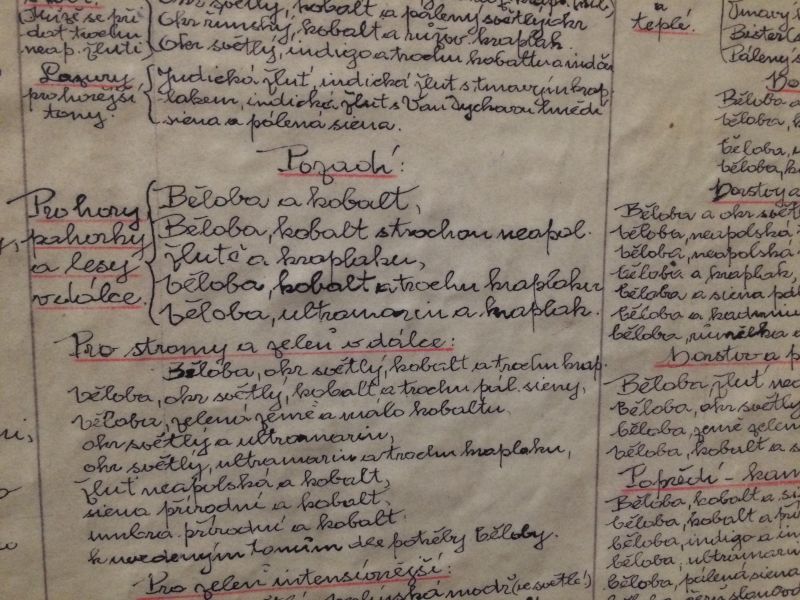 Okr světlý, kobalt a pálený světlý okr
může se při
dat trochu
neap. žluti
Okr římský, kobalt a růžov. kraplak
Okr světlý, indigo a trochu kobaltu a
Lazury
pro hořejší
tony:
Indická žluť, indická žluť s tmavým krap
lakem, indická žluť s Van Dyckovou hnědí
siena a pálená siena.
Pozadí:
Pro hory,
pahorky
a lesy
v dálce.
Běloba a kobalt,
Běloba, kobalt s trochou neapol.
žlutě a kraplaku,
běloba, kobalt a trochu kraplaku
běloba, ultramarin a kraplak.
Pro stromy a zeleň v dálce:
Běloba, okr světlý, kobalt a trochu krap.
běloba, okr světlý, kobalt a trochu pál. sieny,
běloba, zelená země a málo kobaltu
okr světlý a ultramarin,
okr světlý, ultramarin a trochu kraplaku,
žluť neapolská a kobalt,
siena přírodní a kobalt,
umbra přírodní a kobalt.
k uvedeným tonům dle potřeby běloby.
Pro zeleň intensivnější:
modř (ve světlé)
a
teplé.
Tmavý
Bistr
Pálený
Běloba a
běloba, k
běloba, m
běloba, k
Dorstvo a
Běloba a okr svět
běloba, neapolská
běloba, neapolská
běloba a kraplak,
běloba a siena pál
běloba a kadmiu
běloba, rumělka a
Dorstvo a p
Běloba, žluť nea
běloba, okr světlý
běloba, země zelen
běloba, kobalt a s
Popředí - kam
Běloba, kobalt a si
běloba, kobalt a pří
běloba, indigo a in
běloba, ultramarin
běloba, pálená siena